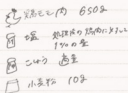 鶏もも肉 650g
塩 処理後の鶏肉に対して
1%の量
こしょう 適量
小麦粉 10g